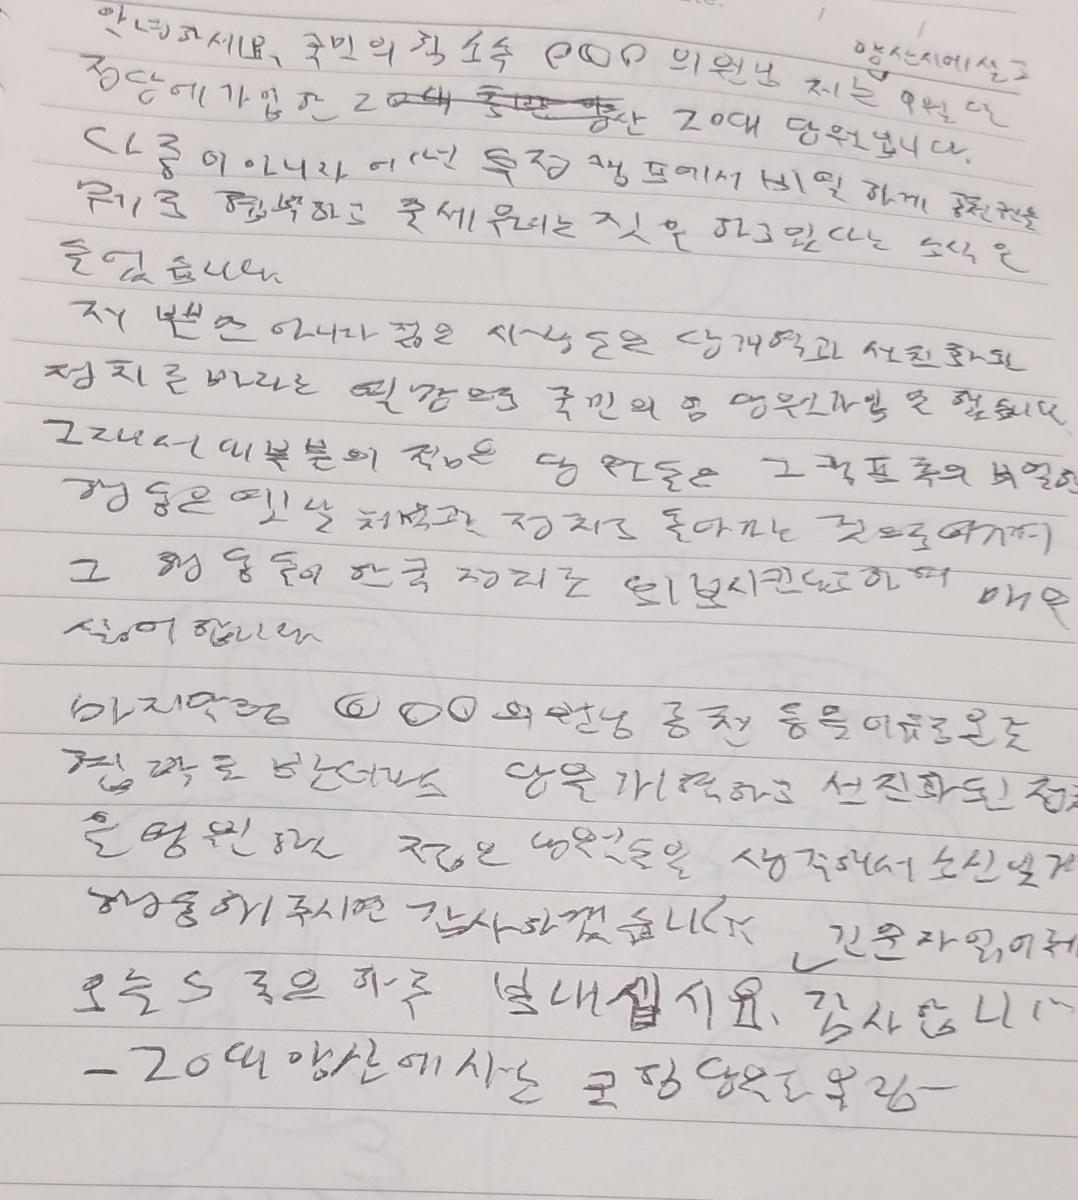 안녕하세요, 국민의힘 소속 OOO 의원님 저는 양산시에 살고 9월 달
정당에 가입한 20대 당원입니다.
다름이 아니라 어떤 특정 캠프에서 비열하게 공천권을
무기로 협박하고 줄세우려는 짓을 하고 있다는 소식을
들었습니다.
저 뿐만 아니라 젊은 사람들은 당개혁과 선진화된
정치를 바라는 열망으로 국민의 힘 당원가입을 했습니다
그래서 대부분의 젊은 당원들은 그 캠프 측의 비열한
행동은 옛날 정치로 돌아가는 것으로 여기며
그 행동들이 한국 정치를 퇴보시킨다고하며 매우
싫어합니다
마지막으로 OOO의원님 공천 등을 이유로 온갖
협박을 받더라도 당을 개혁하고 선진화된 정치
을 염원하는 젊은 당원들을 생각해서 소신있게
행동해주시면 감사하겠습니다 긴문자 읽어주셔서
오늘도 좋은 하루 보내십시요. 감사합니다
-20대 양산에 사는 국힘 당원 올림-